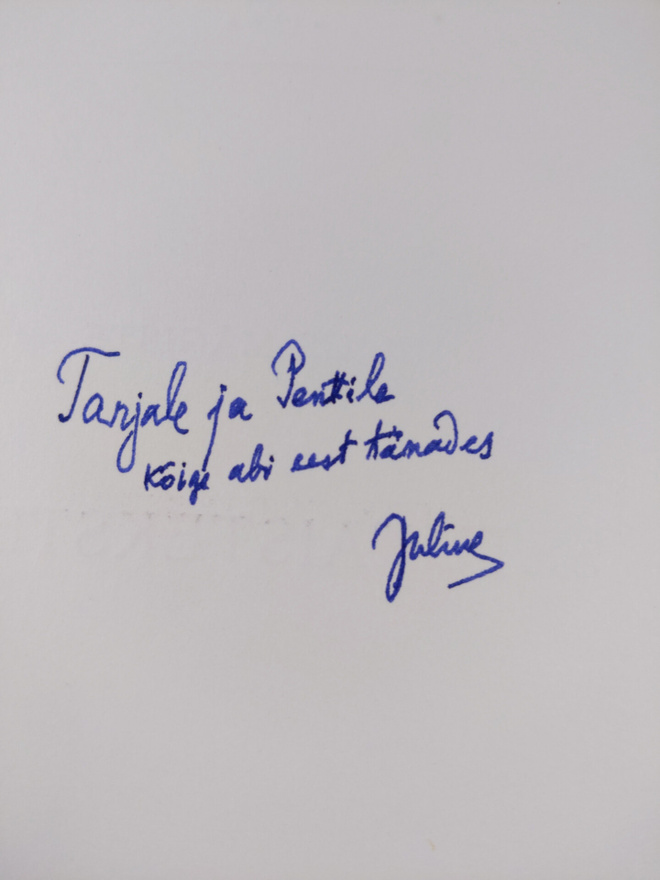 Tarjale ja Penttile
kõige abi eest tänades
Julius